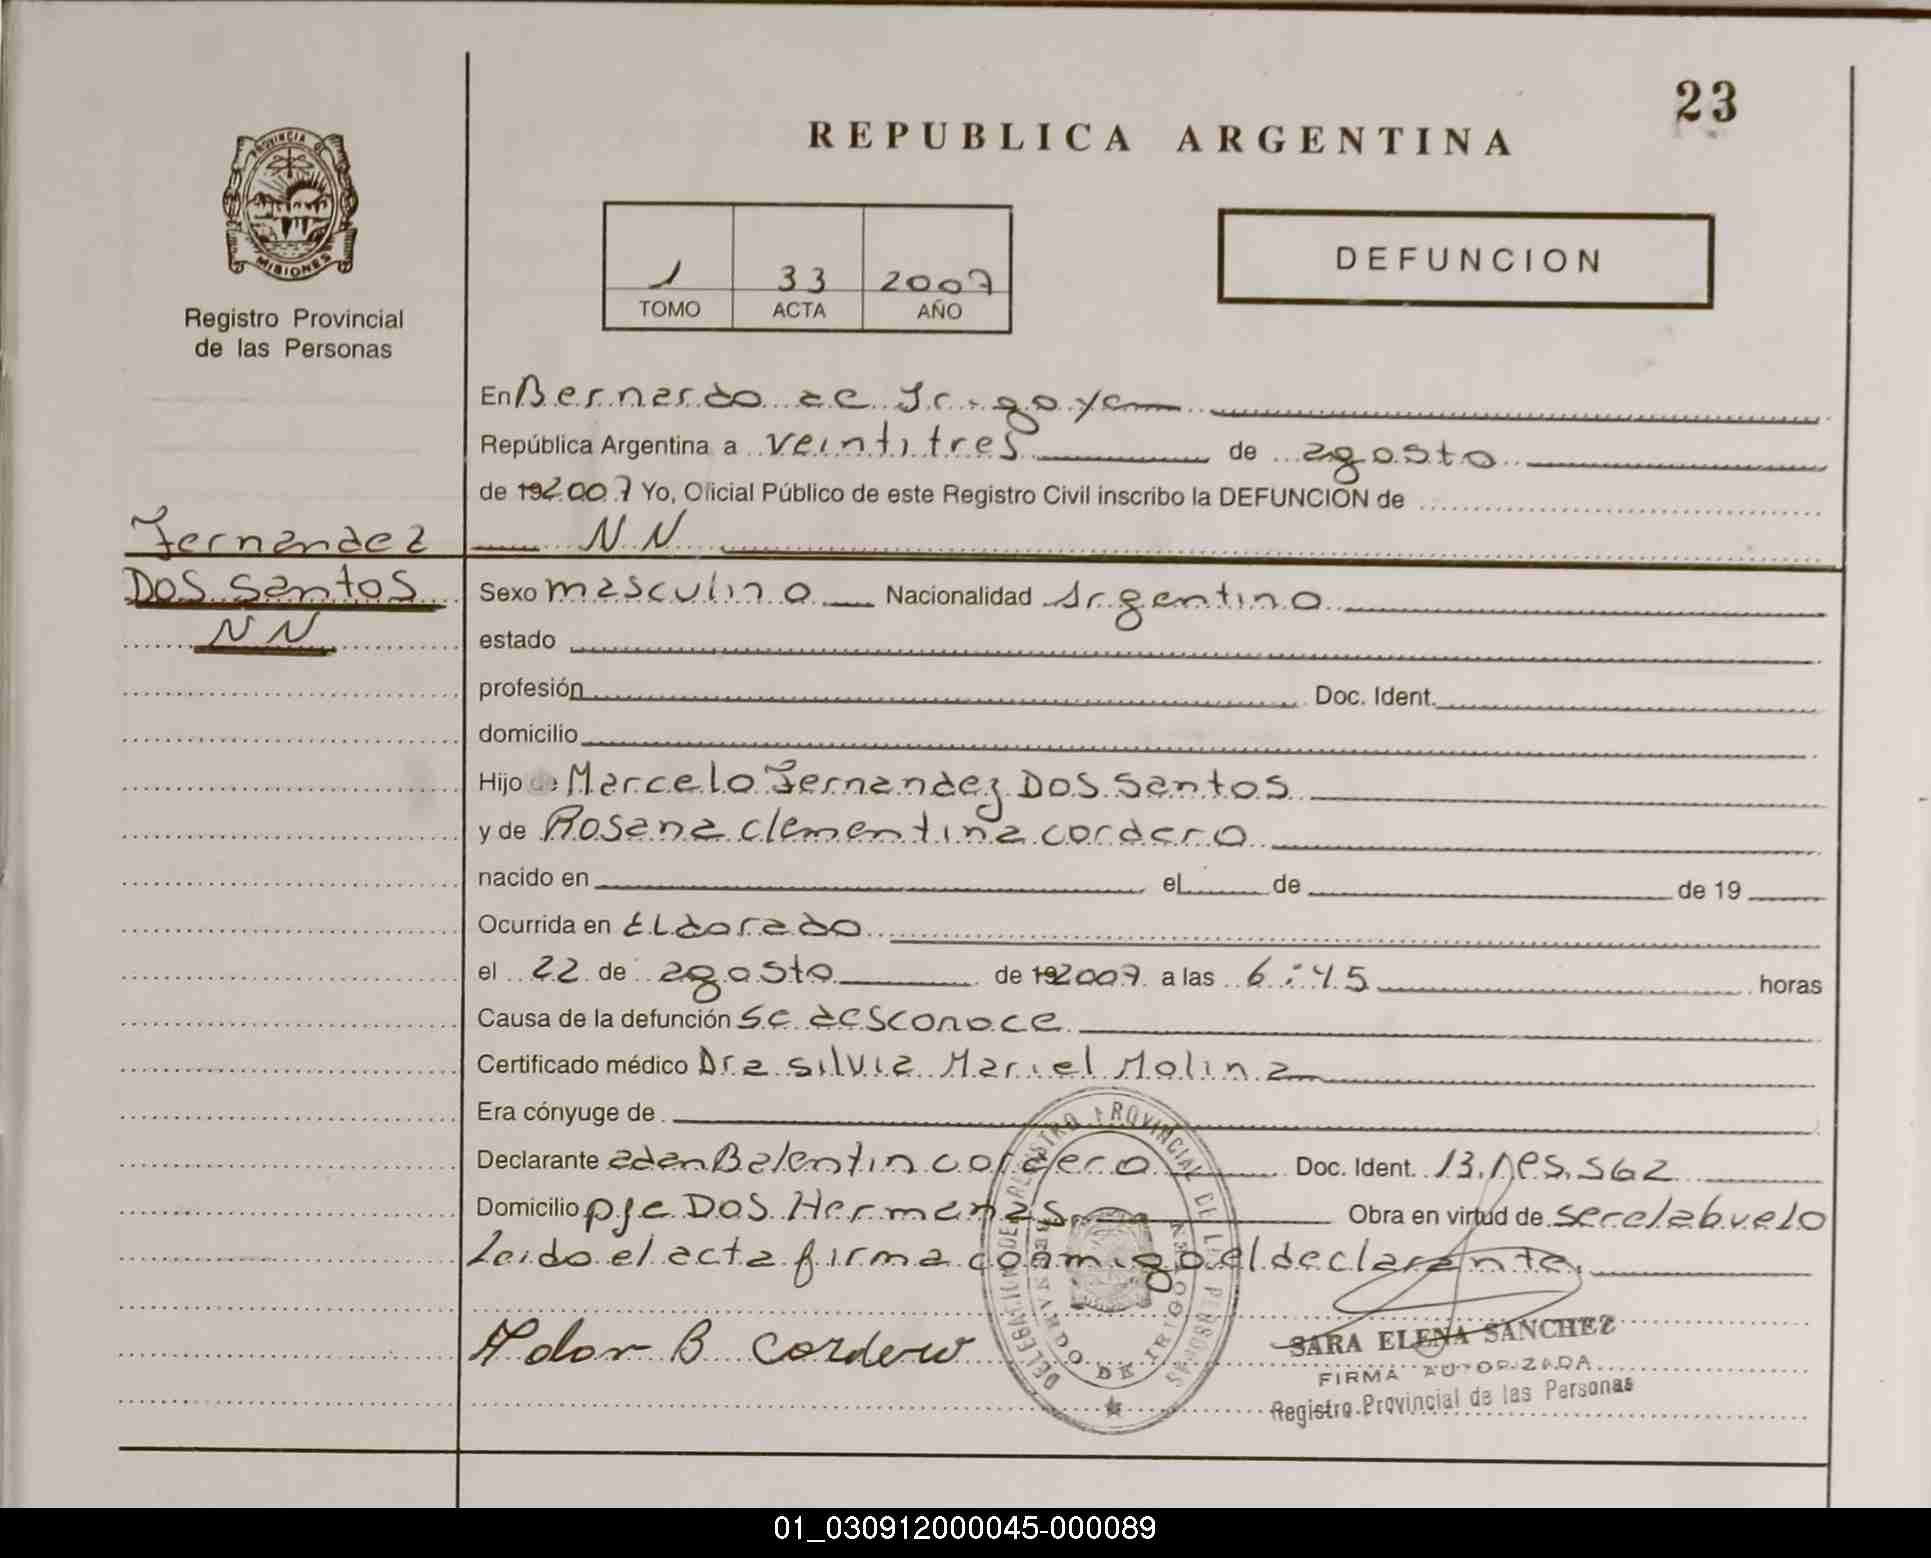 23
REPUBLICA ARGENTINA
PROVINCIA DE
MISIONES
Registro Provincial
de las Personas
1 33 2007
TOMO ACTA AÑO
DEFUNCION
En Bernardo de Irigoyen
República Argentina a veintitres de agosto
de 192007 Yo, Oficial Público de este Registro Civil inscribo la DEFUNCION de
Fernandez NN
Dos Santos Sexo masculino Nacionalidad Argentino
NN estado
profesión Doc. Ident.
domicilio
Hijo de Marcelo Fernandez Dos Santos
y de Rosana clementina cordero
nacido en el de de 19
Ocurrida en Eldorado
el 22 de agosto de 192007 a las 6:45 horas
Causa de la defunción se desconoce
Certificado médico Dra silvia Mariel Molina
Era cónyuge de
Declarante adan Balentin cordero Doc. Ident. 13. 562
Domicilio pje Dos Hermanas Obra en virtud de ser el abuelo
Leido el acta firma conmigo el declarante.
B Cordero
DELEGACION DE REGISTRO PROVINCIAL DE LAS PERSONAS
BERNARDO DE IRIGOYEN
SARA ELENA SANCHEZ
FIRMA AUTORIZADA
Registro Provincial de las Personas
01_030912000045-000089